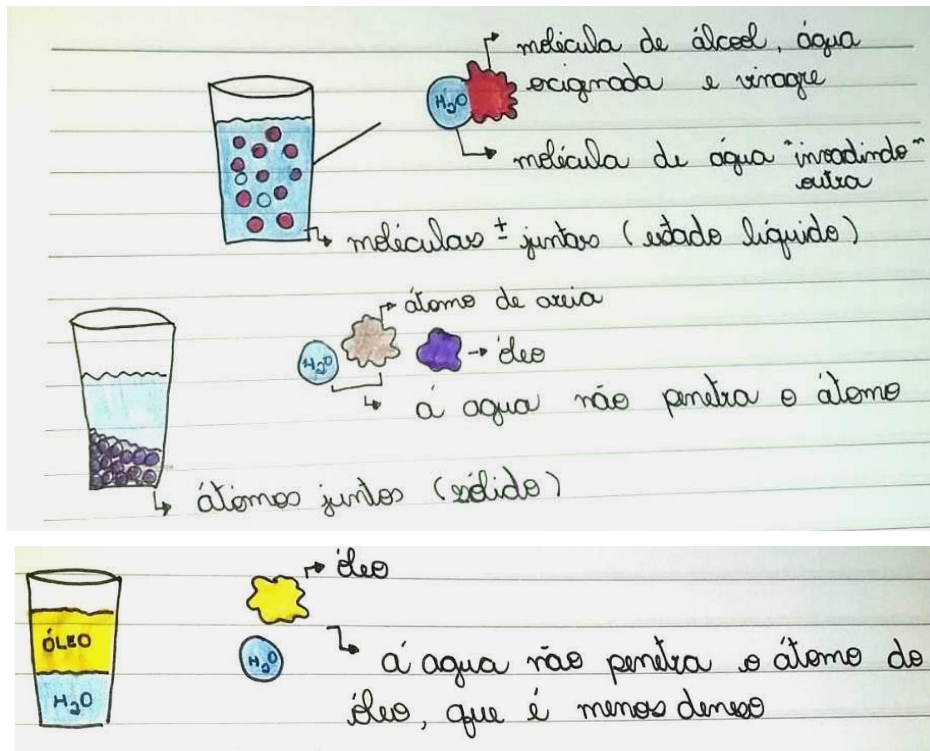 molécula de álcool, água
ocigenada e vinagre
H₂O
molécula de água "invadindo"
outra
moléculas ± juntas (estado líquido)
átomo de areia
H₂O
óleo
á agua não penetra o átomo
átomos juntos (sólido)
óleo
ÓLEO
H₂O
H₂O
á agua não penetra o átomo do
óleo, que é menos denso